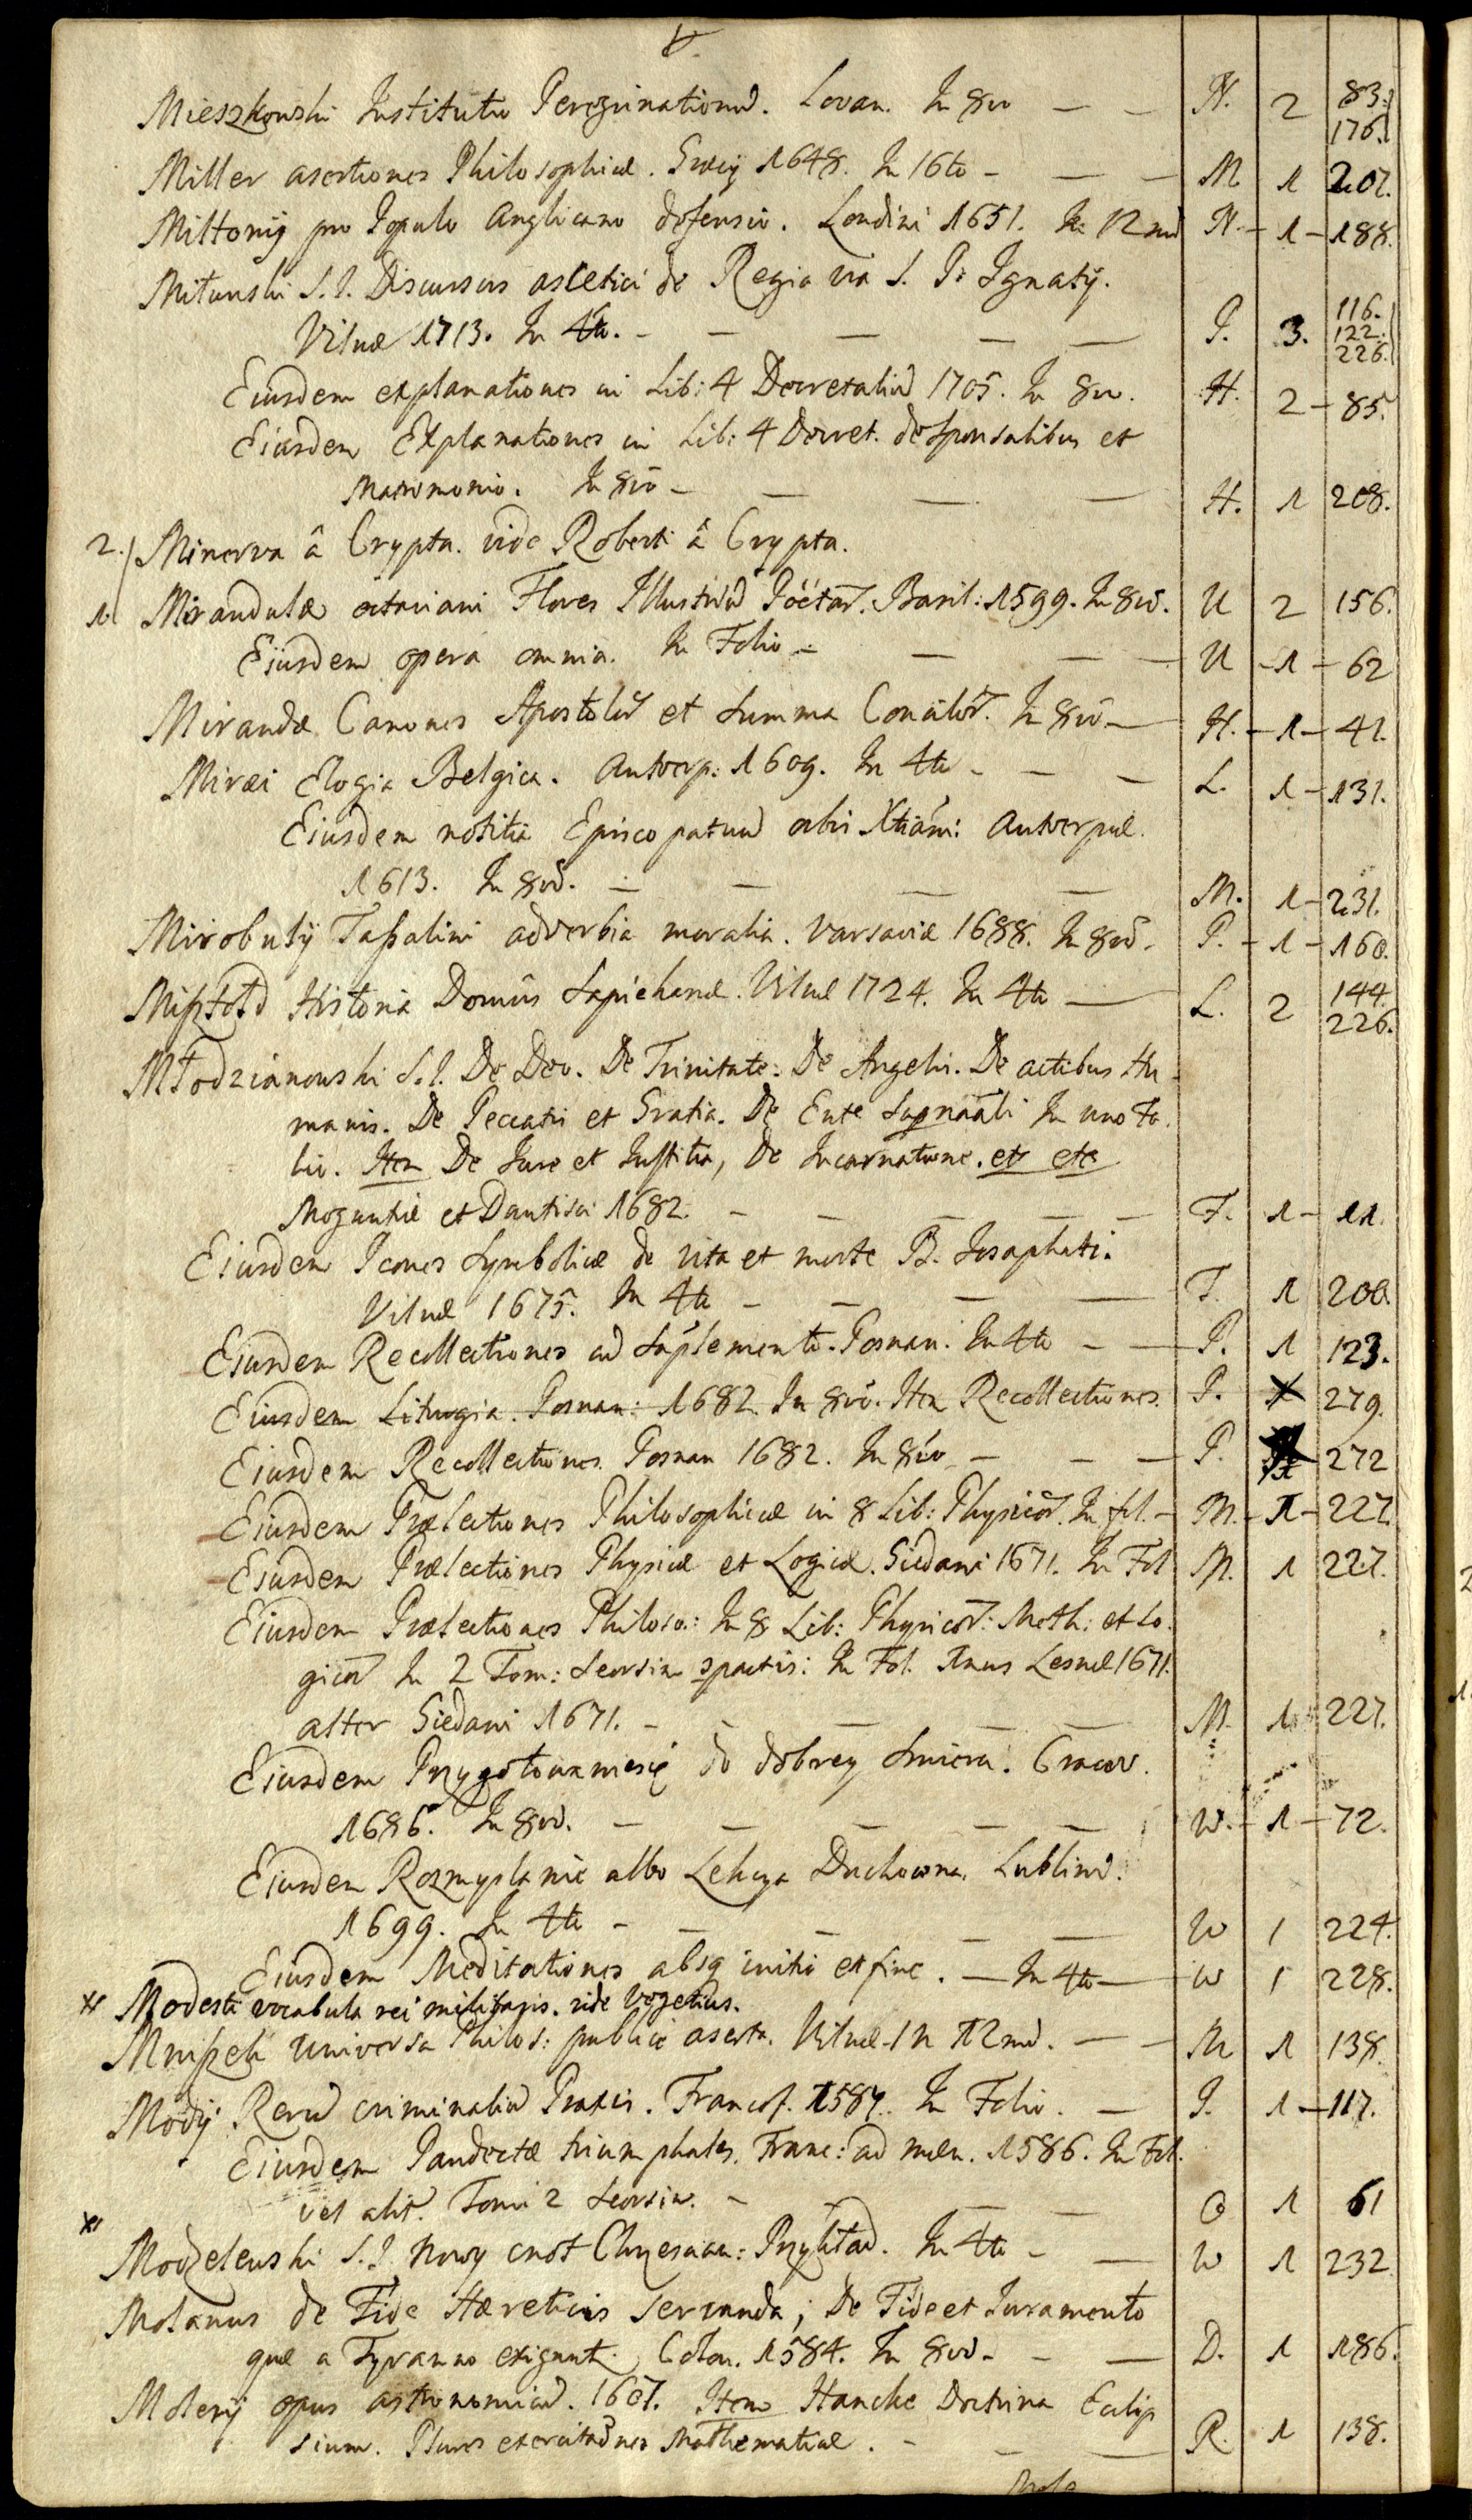 Mieszkowski Institutio Peregrinationū. Lovan. In 8vo — — N. 2 83. 176.
Miller asertiones Philosophicæ. Græcij 1648. In 16to - — — M 1 207.
Miltonij pro Populo Anglicano defensio. Londini 1651. In 12mo N. - 1 - 188.
Mitunski S.J. Discursus ascetici de Regia via S. P: Ignatij.
Vilnæ 1713. In 4to. - — — — — P. 3. 116. 122. 226.
Eiusdem explanationes in Lib: 4 Decretaliū 1705. In 8vo. H. 2 - 85.
Eiusdem Explanationes in Lib: 4 Decret. de sponsalibus et
Matrimonio. In 8vō - — — — H. 1 208.
2./ Minerva â Crypta. vide Roberti â Crypta.
1. Mirandulæ octaviani Flores Illustriū Poëtar̄. Basil: 1599. In 8vō. U 2 156.
Eiusdem opera omnia. In Folio - — — — U - 1 - 62
Mirandæ Canones Apostolor̄ et Summa Concilior̄. In 8vō — H. - 1 - 41.
Miræi Elogia Belgica. Antverp: 1609. In 4to - — — L. 1 - 131.
Eiusdem notitia Episcopatuū orbis Xtiāni: Antverpiæ.
1613. In 8vō. — — — — M. 1 - 231.
Mirobulij Taßalini adverbia moralia. Varsaviæ 1688. In 8vō. P. - 1 - 160.
Mißtołd Historia Domûs Sapiehanæ. Vilnæ 1724. In 4to — L. 2 144. 226.
Młodzianowski S.J. De Deo. De Trinitate: De Angelis. De actibus Hu
manis. De Peccatis et Gratia. De Ente Supnaāli In uno Fo
lio. Item De Jure et Justitia, De Incarnatione. et etc
Moguntiæ et Dantisci 1682. - — — — — F. 1 - 11.
Eiusdem Icones Symbolicæ de vita et morte B. Josaphati.
Vilnæ 1675. In 4to - — — — T. 1 200.
Eiusdem Recollectiones cū Suplemento. Posnan. In 4to - — P. 1 123.
Eiusdem Liturgia. Posnan: 1682 In 8vō. Item Recollectiones. P. 279.
Eiusdem Recollectiones Posnan 1682. In 8vo - — — P. 272
Eiusdem Prælectiones Philosophicæ in 8 Lib: Physicor̄. In fol. - M. - 1 - 227.
Eiusdem Prælectiones Physicæ et Logicæ. Giedani 1671. In Fol M. 1 227.
Eiusdem Prælectiones Philoso: In 8 Lib: Physicor̄: Meth: et Lo
gica In 2 Tom: Seorsim spactis: In Fol. Unus Lesnæ 1671.
alter Giedani 1671. - — — — M. 1 227.
Eiusdem Przygotowaniesię do dobrey Smierci. Cracov.
1686. In 8vō. — — — — — W. - 1 - 72.
Eiusdem Rozmyslanie albo Lekcya Duchowna. Lublinū.
1699. In 4to - — — — — W 1 224.
Eiusdem Meditationes absq initio et fine. — In 4to — W 1 228.
Modesti vocabula rei militaris. vide Vegetius.
Mnißek Universa Philos: publicè aserta. Vilnæ - In 12mō. — — M 1 138.
Modij. Rerū criminaliū Praxis. Francof. 1587. In Folio. — P. 1 - 117.
Eiusdem Pandectæ triumphales. Franc: ad mæn. 1586. In Fol.
vel alit. Tomi 2 Seorsim. - — — — O 1 61
Modzelewski S.J. Nowy cnot Chrzescian: Przykład. In 4to - — W 1 232
Molanus de Fide Hæreticis servanda; De Fide et Juramento
quæ a Tyranno exigunt. Colon. 1584. In 8vō. - — D. 1 186.
Molerij opus astronomicū. 1607. Item Hancke Doctrina Eclip
sium. Plures exercitaōnes Mathematicæ. - — — R. 1 138.